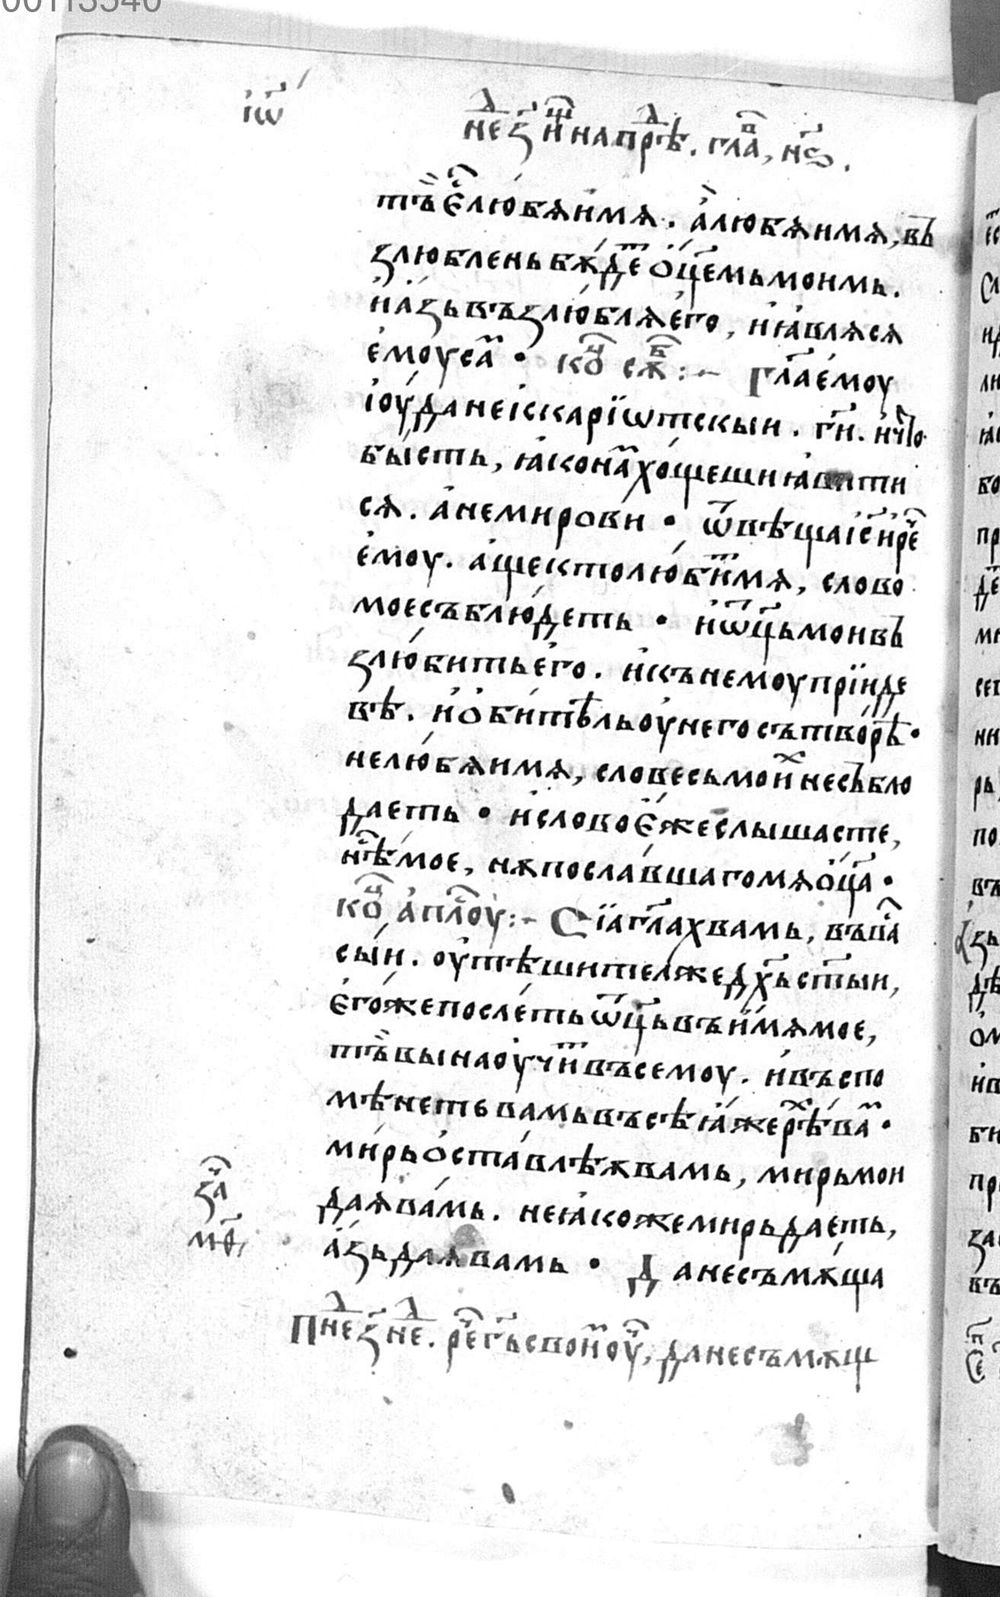 00113540
іѡ҃
не҃ ꙁ҃ и҃ на прѣ҃. гла҃, нѕ҃.
тъ̏ е҆́ люблѧи мѧ. а҆̀ любѧи мѧ, въ
ꙁлюблень бѫ́де҃ о҆ц҃емь моимь.
и҆ а҆́ꙁь въꙁлюблѧ е҆го, и҆ ꙗвлѧ сѧ
е҆моу са҃ • ко҃ сѫ҃ :~ Гл҃а е҆моу
і҆оу́да не іскарїѡтскыи. г҃и. и҆ что
бы́сть, ꙗко на҃ хо́щеши ꙗвити
сѧ. а҆ не мирови • ѿвѣща і҃с и҆ ре҃
е҆моу. а҆ще кто лю́би҃ мѧ, слово
мое съблю́деть • и҆ ѡ҃ць мои въ
ꙁлю́бить е҆го. и҆ къ немоу прїиде
вѣ. и҆ о҆би́тѣль оу҆ него сътво́рѣ •
не лю́бѧи мѧ, словесь мои҃ не съблю
даеть • и҆ слово е҆́же слышасте,
нѣ҃ мое, нѫ посла́вшаго мѧ о҆ц҃а •
ко҃ а҆пло҃у :~ Сїа гл҃ах вамь, въ ва҃
сы́и. оу҆тѣшитель же дх҃ь ст҃ыи,
е҆го́же после́ть ѡ҃ць въ и҆́мѧ мое,
тъ̏ вы наоу҆чи҃ въсемоу. и҆ въспо
мѣнеть вамь въсѣ ꙗ҆́же рѣ҃ ва҃ •
ми́рь о҆ста́влѣѫ вамь, мирь мои
даѧ ва́мь. не ꙗ҆коже мирь даеть,
а҆́ꙁь даѧ вамь • Да не съмѫ́ща
ꙁа҃
м҃ѳ,
П не҃ ꙁ҃ не҃. ре҃ гь҃ свои҃ оу҃, да не съмѫщ